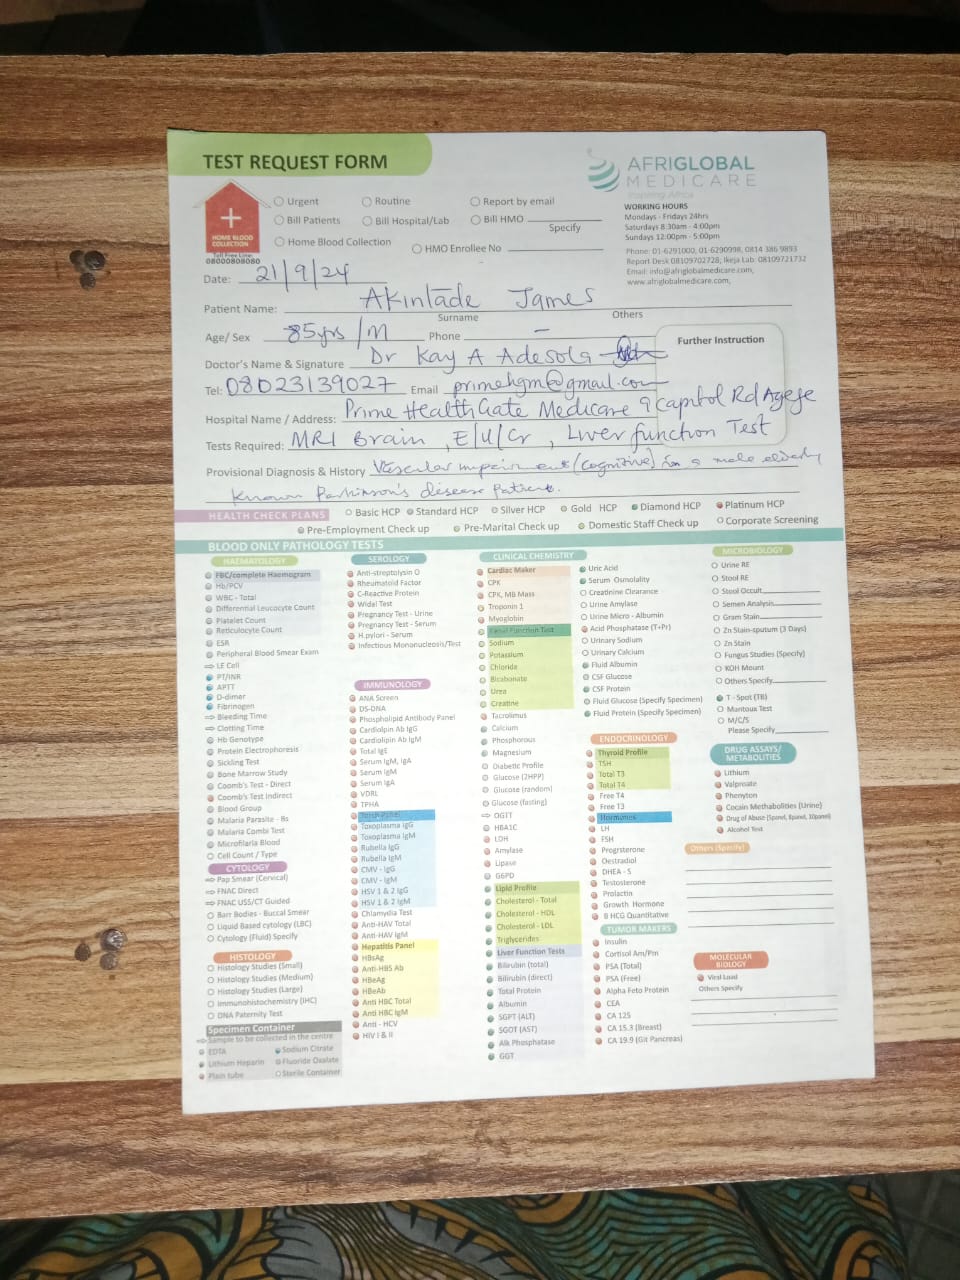 TEST REQUEST FORM
AFRIGLOBAL
MEDICARE
Inspiring Africa
HOME BLOOD
COLLECTION
Toll Free Line:
08000808080
Urgent
Routine
Report by email
Bill Patients
Bill Hospital/Lab
Bill HMO
Specify
Home Blood Collection
HMO Enrollee No
WORKING HOURS
Mondays - Fridays 24hrs
Saturdays 8:30am - 4:00pm
Sundays 12:00pm - 5:00pm
Phone: 01-6291000, 01-6290998, 0814 386 9893
Report Desk 08109702728, Ikeja Lab: 08109721732
Email: info@afriglobalmedicare.com,
www.afriglobalmedicare.com,
Date: 21/9/24
Patient Name: Akintade James
Surname Others
Age/ Sex 85yrs/M Phone -
Further Instruction
Doctor's Name & Signature Dr Kay A Adesola
Tel: 08023139027 Email primehgm@gmail.com
Hospital Name / Address: Prime HealthGate Medicare 9 Capitol Rd Agege
Tests Required: MRI Brain, E/U/Cr, Liver function Test
Provisional Diagnosis & History Vascular impairment (cognitive) in a male elderly
known Parkinson's disease patient.
HEALTH CHECK PLANS
Basic HCP Standard HCP Silver HCP Gold HCP Diamond HCP Platinum HCP
Pre-Employment Check up Pre-Marital Check up Domestic Staff Check up Corporate Screening
BLOOD ONLY PATHOLOGY TESTS
HAEMATOLOGY
FBC/complete Haemogram
Hb/PCV
WBC - Total
Differential Leucocyte Count
Platelet Count
Reticulocyte Count
ESR
Peripheral Blood Smear Exam
LE Cell
PT/INR
APTT
D-dimer
Fibrinogen
Bleeding Time
Clotting Time
Hb Genotype
Protein Electrophoresis
Sickling Test
Bone Marrow Study
Coomb's Test - Direct
Coomb's Test Indirect
Blood Group
Malaria Parasite - Bs
Malaria Combi Test
Microfilaria Blood
Cell Count / Type
CYTOLOGY
Pap Smear (Cervical)
FNAC Direct
FNAC USS/CT Guided
Barr Bodies - Buccal Smear
Liquid Based cytology (LBC)
Cytology (Fluid) Specify
HISTOLOGY
Histology Studies (Small)
Histology Studies (Medium)
Histology Studies (Large)
Immunohistochemistry (IHC)
DNA Paternity Test
Specimen Container
Sample to be collected in the centre
EDTA
Sodium Citrate
Lithium Heparin
Fluoride Oxalate
Plain tube
Sterile Container
SEROLOGY
Anti-streptolysin O
Rheumatoid Factor
C-Reactive Protein
Widal Test
Pregnancy Test - Urine
Pregnancy Test - Serum
H.pylori - Serum
Infectious Mononucleosis/Test
IMMUNOLOGY
ANA Screen
DS-DNA
Phospholipid Antibody Panel
Cardiolpin Ab IgG
Cardiolipin Ab IgM
Total IgE
Serum IgM, IgA
Serum IgM
Serum IgA
VDRL
TPHA
Torch Panel
Toxoplasma IgG
Toxoplasma IgM
Rubella IgG
Rubella IgM
CMV - IgG
CMV - IgM
HSV 1 & 2 IgG
HSV 1 & 2 IgM
Chlamydia Test
Anti-HAV Total
Anti-HAV IgM
Hepatitis Panel
HBsAg
Anti-HBS Ab
HBeAg
HBeAb
Anti HBC Total
Anti HBC IgM
Anti - HCV
HIV I & II
CLINICAL CHEMISTRY
Cardiac Maker
CPK
CPK, MB Mass
Troponin 1
Myoglobin
Renal Function Test
Sodium
Potassium
Chloride
Bicabonate
Urea
Creatine
Tacrolimus
Calcium
Phosphorous
Magnesium
Diabetic Profile
Glucose (2HPP)
Glucose (random)
Glucose (fasting)
OGTT
HBA1C
LDH
Amylase
Lipase
G6PD
Lipid Profile
Cholesterol - Total
Cholesterol - HDL
Cholesterol - LDL
Triglycerides
Liver Function Tests
Bilirubin (total)
Bilirubin (direct)
Total Protein
Albumin
SGPT (ALT)
SGOT (AST)
Alk Phosphatase
GGT
Uric Acid
Serum Osmolality
Creatinine Clearance
Urine Amylase
Urine Micro - Albumin
Acid Phosphatase (T+Pr)
Urinary Sodium
Urinary Calcium
Fluid Albumin
CSF Glucose
CSF Protein
Fluid Glucose (Specify Specimen)
Fluid Protein (Specify Specimen)
ENDOCRINOLOGY
Thyroid Profile
TSH
Total T3
Total T4
Free T4
Free T3
Hormones
LH
FSH
Progrsterone
Oestradiol
DHEA - S
Testosterone
Prolactin
Growth Hormone
B HCG Quantitative
TUMOR MAKERS
Insulin
Cortisol Am/Pm
PSA (Total)
PSA (Free)
Alpha Feto Protein
CEA
CA 125
CA 15.3 (Breast)
CA 19.9 (Git Pancreas)
MICROBIOLOGY
Urine RE
Stool RE
Stool Occult
Semen Analysis
Gram Stain
Zn Stain-sputum (3 Days)
Zn Stain
Fungus Studies (Specify)
KOH Mount
Others Specify
T - Spot (TB)
Mantoux Test
M/C/S
Please Specify
DRUG ASSAYS/
METABOLITIES
Lithium
Valproate
Phenyton
Cocain Methabolities (Urine)
Drug of Abuse (5panel, 8panel, 10panel)
Alcohol Test
Others (Specify)
MOLECULAR
BIOLOGY
Viral Load
Others Specify